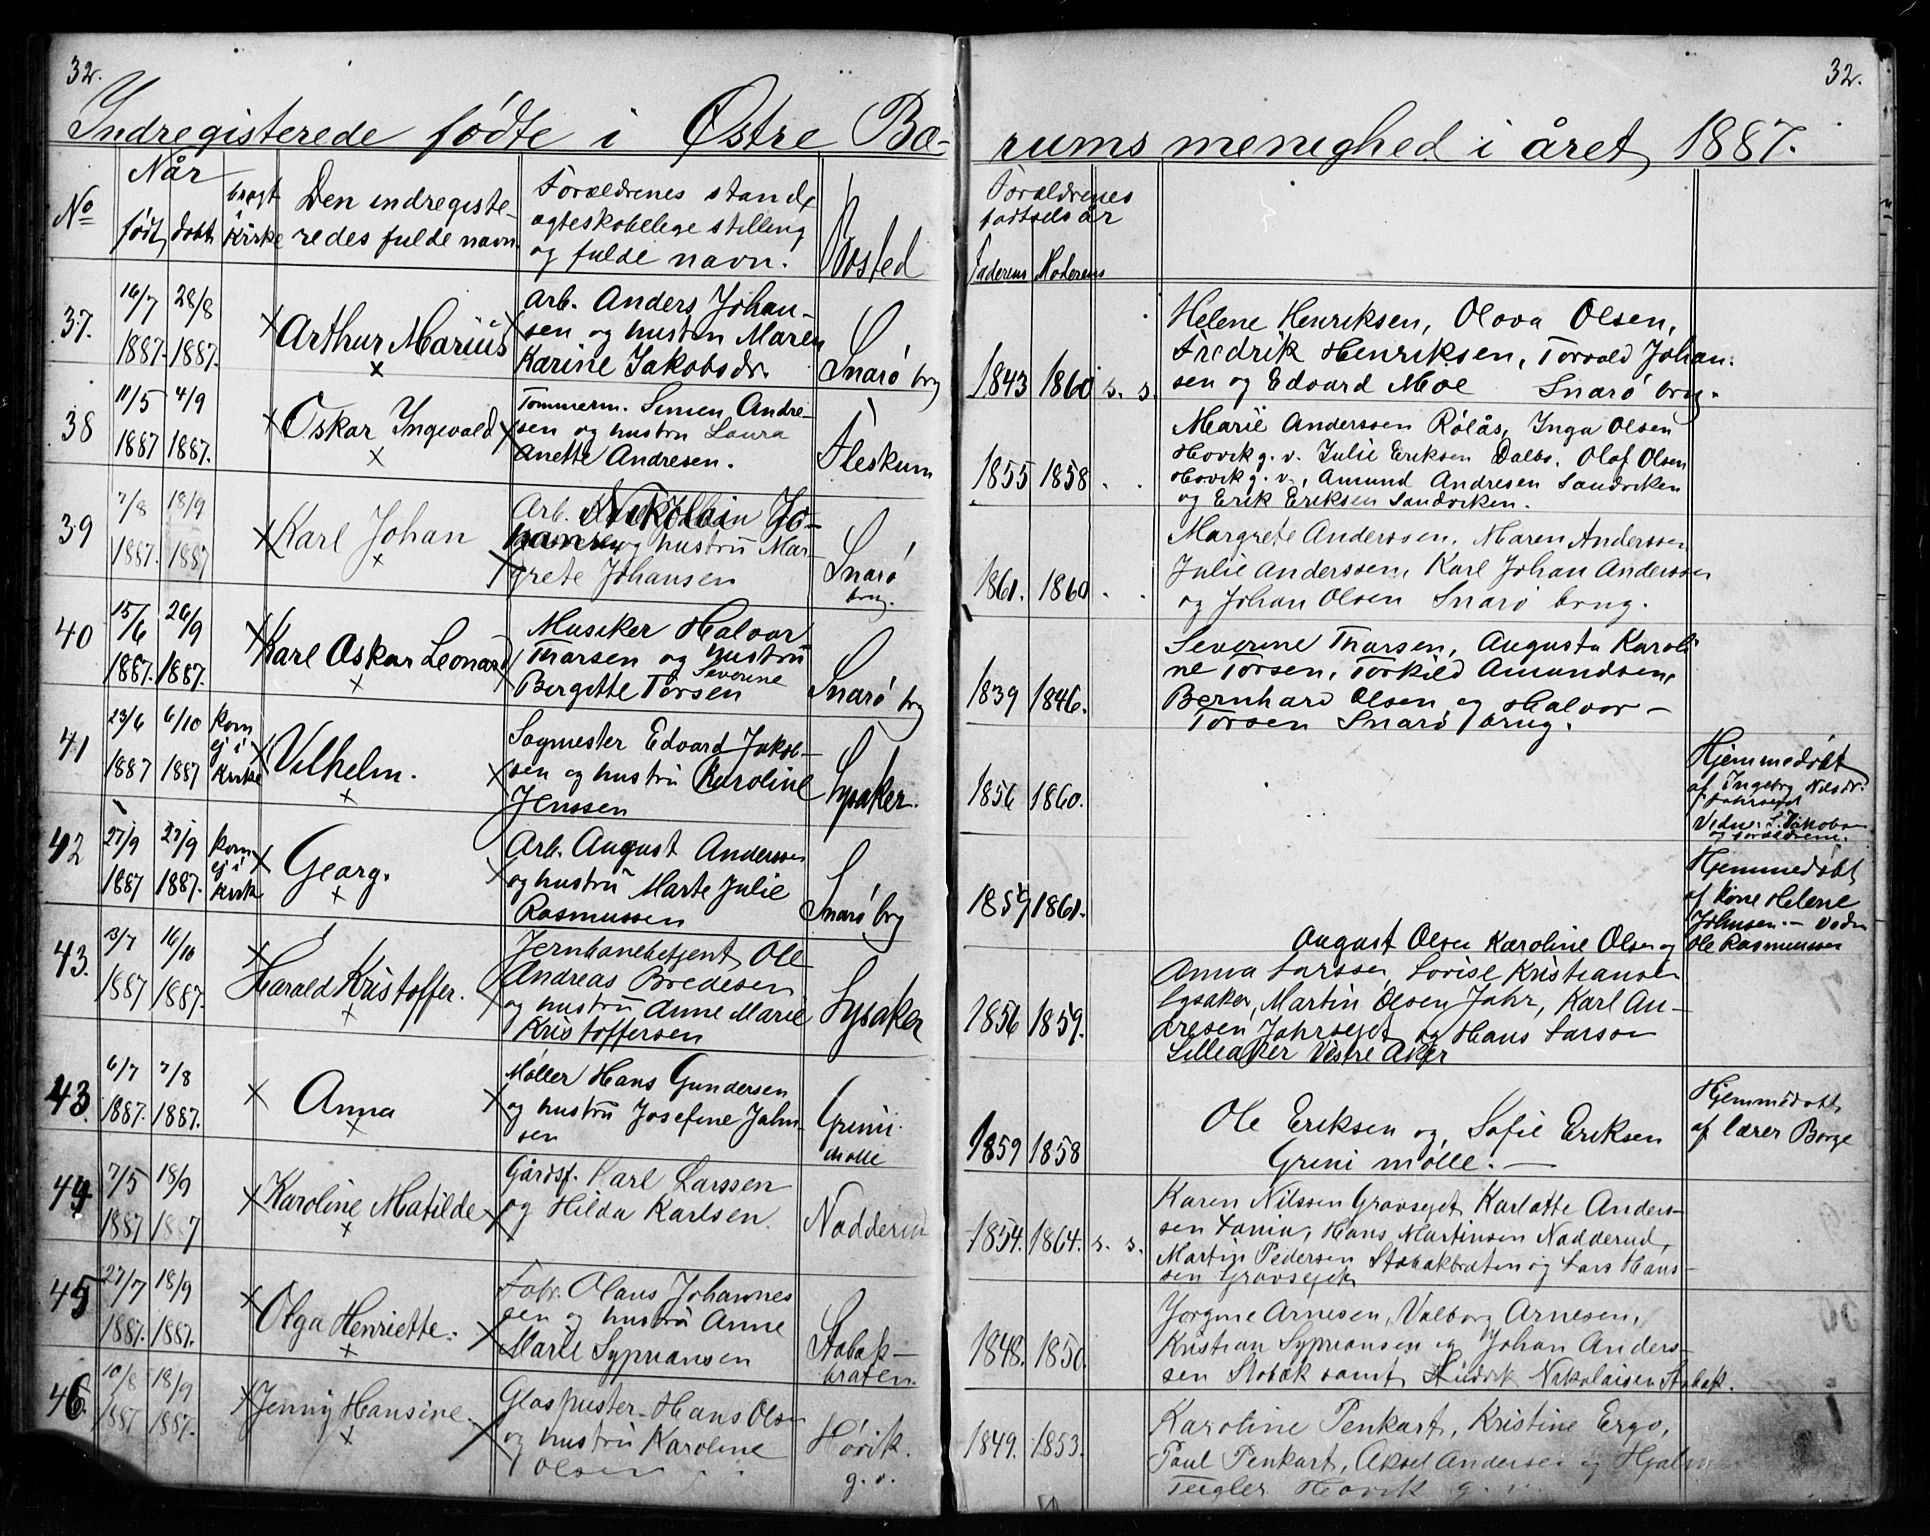 32.
Indregisterede fødte i Østre Bæ-
No
Når
født
døbt
bragt i Kirke
Den indregiste-
redes fulde navn
Forældrenes stand,
ægteskabelige stilling
og fulde navn.
Bosted
37.
16/7
1887.
28/8
1887.
Arthur Marius
Arb. Anders Johan-
sen og hustru Maren
Karine Jakobsdr.
Snarø brg
38
11/5
1887
4/9
1887.
Oskar Ingevald
Tømmerm. Simen Andre-
sen og hustru Laura
Anette Andresen.
Fleskum
39
7/8
1887.
18/9
1887
Karl Johan
Arb. Nikolai Jo-
hansen og hustru Mar-
grete Johansen
Snarø
brug.
40
15/6
1887.
26/9
1887.
Karl Oskar Leonard
Musiker Halvor
Tharsen og hustru
Severine
Bergitte Torsen
Snarø brg
41
23/6
1887
6/10
1887
kom
ej i
kirke
Vilhelm.
Sagmester Edvard Jakob-
sen og hustru Karoline
Jenssen
Lysaker.
42
27/9
1887
27/9
1887.
kom
ej i
kirk
Georg.
Arb. August Anderssen
og hustru Marte Julie
Rasmussen
Snarø brg
43.
13/7
1887
16/10
1887.
Harald Kristoffer.
Jernbanebetjent Ole
Andreas Bredesen
og hustru Anne Marie
Kristoffersen
Lysaker
43.
6/7
1887.
7/8
1887.
Anna
Møller Hans Gundersen
og hustru Josefine John-
sen
Grini
mølle
44
7/5
1887
18/9
1887
Karoline Matilde
Gårdsf. Karl Larssen
og Hilda Karlsen.
Nadderud
45
27/7
1887.
18/9
1887.
Olga Henriette.
Fabr. Olaus Johannes
sen og hustru Anne
Marie Syprıansen
Stabæk-
bråten.
46.
10/8
1887
18/9
1887.
Jenny Hansine.
Glaspuster Hans Olsen
og hustru Karoline
Olsen
Høvik.
g. v.
32.
rums menighed i året 1887.
Forældrenes
fødselsår
Faderens
Moderens
1843
1860
s. s.
Helene Henriksen, Olava Olsen,
Fredrik Henriksen, Torvald Johan-
sen og Edvard Moe Snarø brug.
1855
1858
Marie Anderssen Rølås, Inga Olsen
Høvik g. v. Julie Eriksen Dalbo. Olaf Olsen
Høvik g. v., Amund Andresen Sandviken
og Erik Eriksen Sandviken.
1861.
1860
Margrete Anderssen, Maren Anderssen
Julie Anderssen, Karl Johan Anderssen
og Johan Olsen Snarø brug.
1839
1846.
Severine Tharsen, Augusta Karoli
ne Torsen, Torkild Amundsen,
Bernhard Olsen og Halvor
Torsen Snarø brug.
1856
1860.
Hjemmedøbt
af Ingeborg Nilsdr.
Jahrseget
Vidne: L. Jakobsen
og forældrene.
1859
1861.
Hjemmedøbt
af kone Helene
Johnsen. — Vidn
Ole Rasmussen
1856
1859.
August Olsen Karoline Olsen og
Anna Larssen, Lovise Kristiansen
Lysaker, Martin Olsen Jahr, Karl An-
dresen Jahrseget og Hans Larsen
Lilleaker Vestre Aker
1859
1858
Ole Eriksen og Sofie Eriksen
Grini mølle.
Hjemmedøbt
af lærer Borge
1854.
1864.
s. s.
Karen Nilssen Gravseget Karlotte Anders-
sen Fania, Hans Martinsen Nadderud,
Martin Pedersen Stabækbråten og Lars Hans-
sen Gravseget
1848.
1850.
Jørgine Arnesen, Valborg Arnesen,
Kristian Syprıansen og Johan Anders-
sen Stabæk samt Nikolaisen Stabæk.
1849.
1853.
Karoline Penkart, Kristine Ergo,
Paul Penkart, Aksel Andersen og Hjalm
Teigler Høvik g. v.